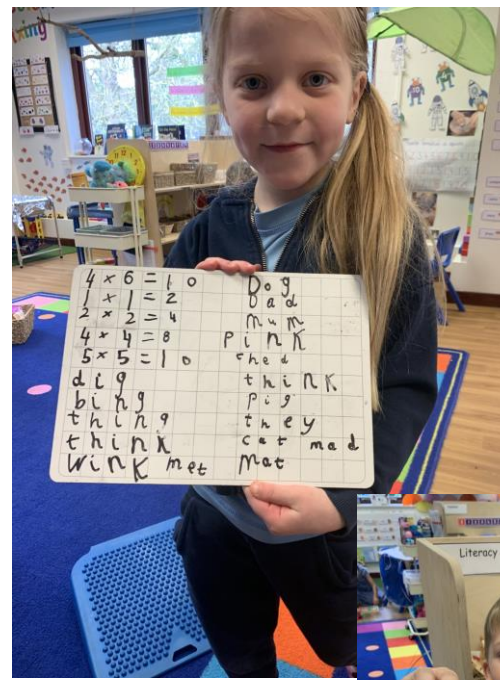 4 × 6 = 10
1 × 1 = 2
2 × 2 = 4
4 × 4 = 8
5 × 5 = 10
dig
bing
thing
think
wink met
Dog
Dad
mum
pink
shed
think
pig
they
cat mad
Mat
Literacy